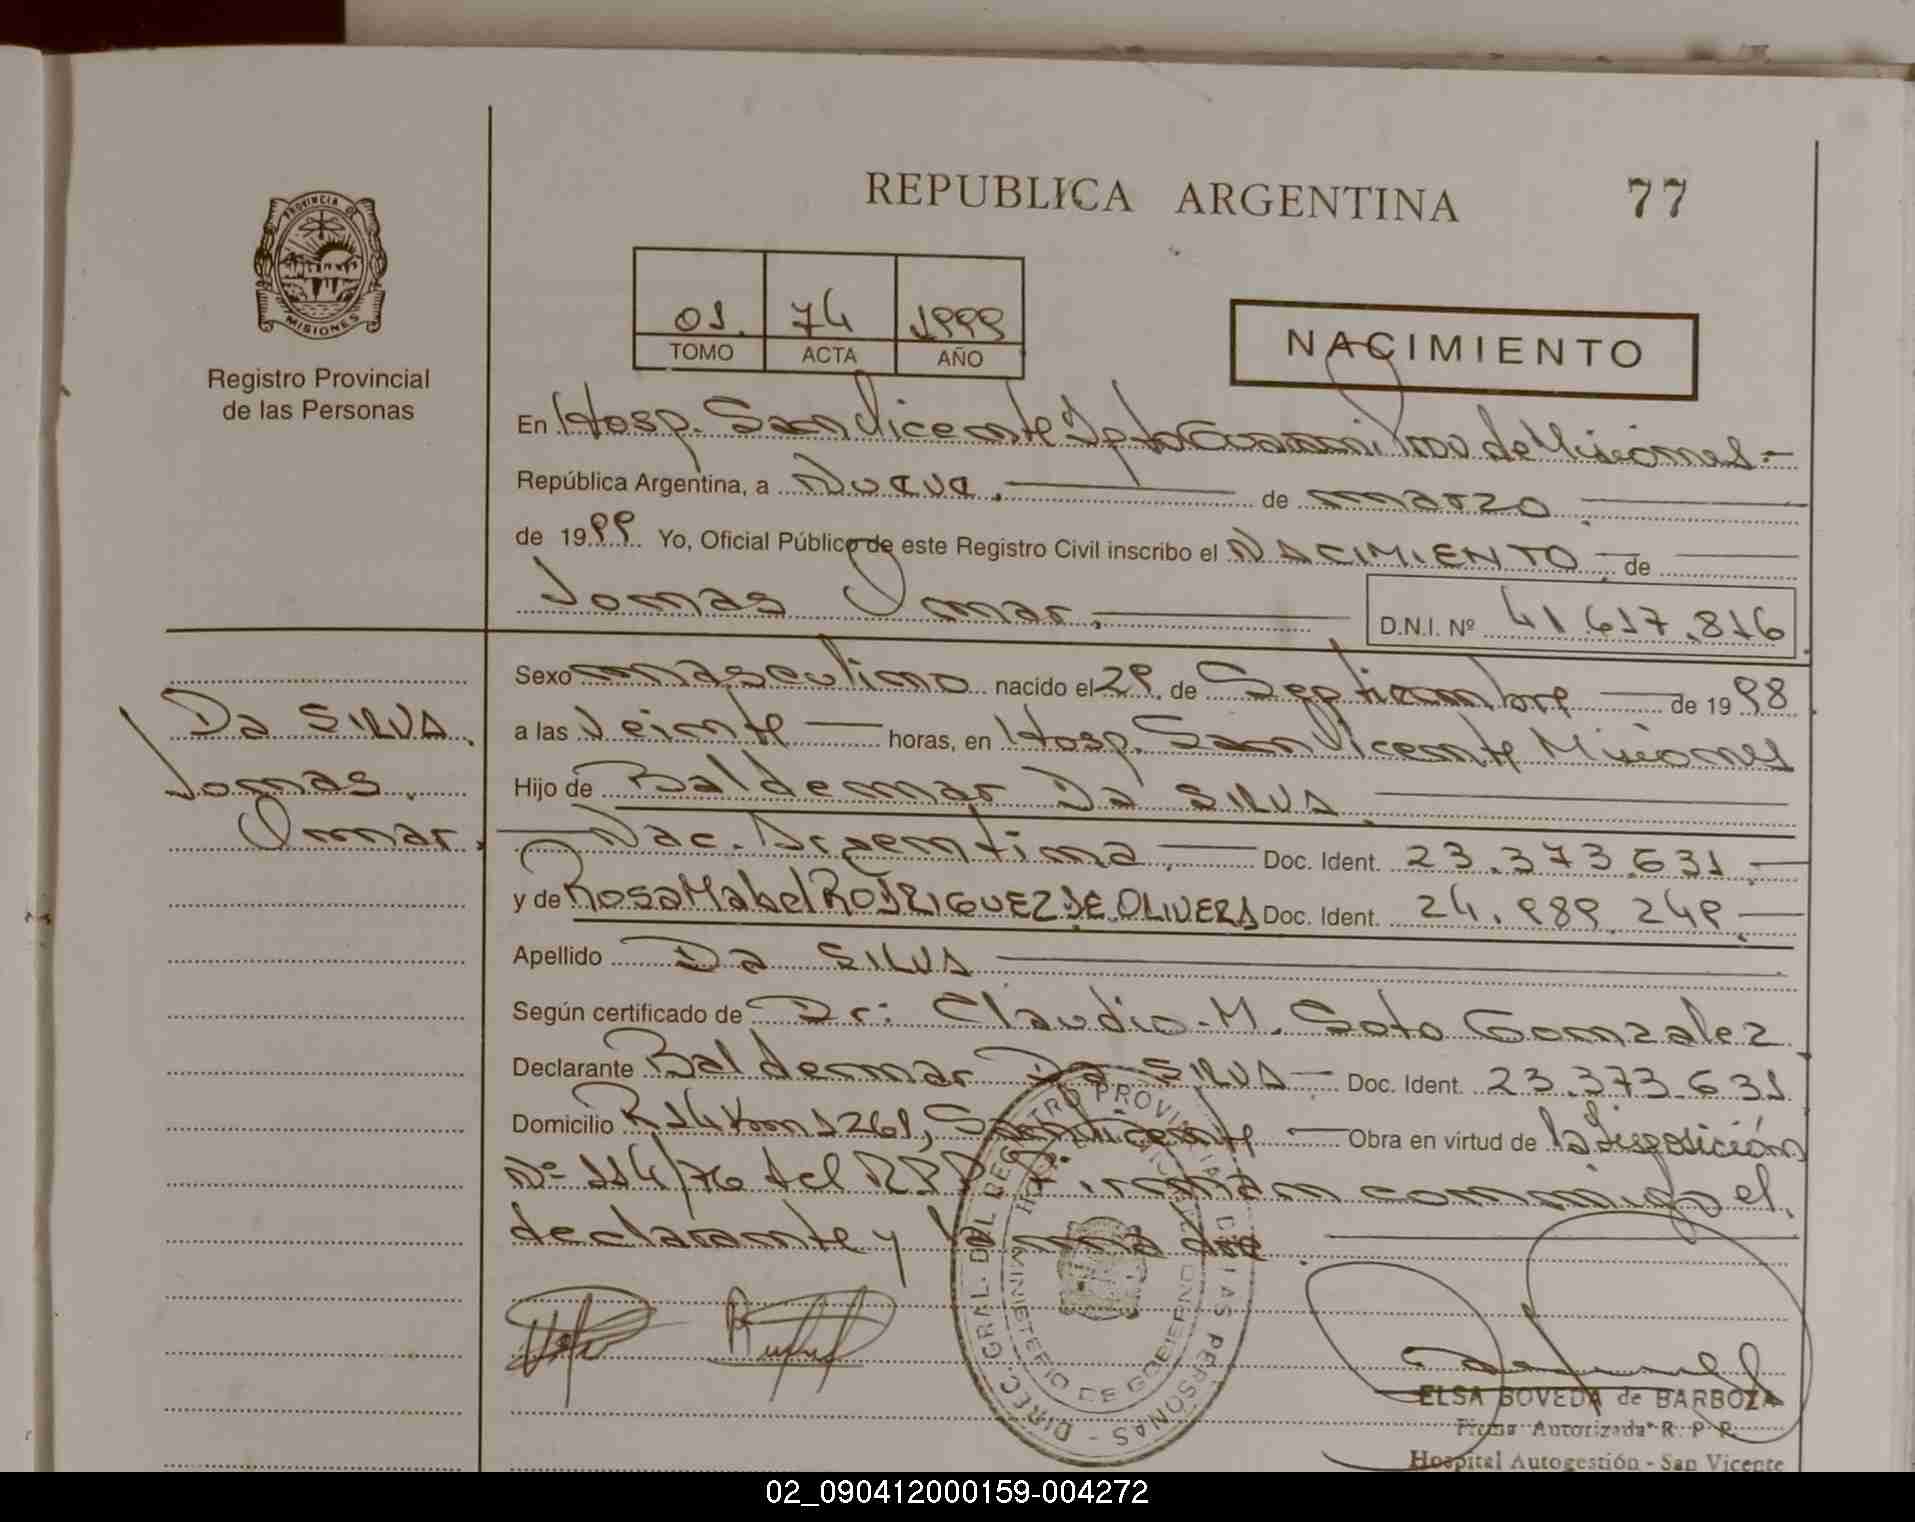 REPUBLICA ARGENTINA
77
PROVINCIA DE
MISIONES
Registro Provincial
de las Personas
01. 74 1999
TOMO ACTA AÑO
NACIMIENTO
En Hosp. San Vicente Dpto Guarani Prov de Misiones.-
República Argentina, a Nueve. de marzo
de 1999. Yo, Oficial Público de este Registro Civil inscribo el NACIMIENTO de
Tomas Omar. D.N.I. Nº 41.617.816
Sexo masculino nacido el 29. de Septiembre de 1998
a las Veinte horas, en Hosp. San Vicente Misiones
Hijo de Baldemar Da SILVA
Nac. Argentina. Doc. Ident. 23.373.631
y de Rosa Mabel RODRIGUEZ DE OLIVERA Doc. Ident. 24.989.249
Apellido Da SILVA
Según certificado de Dr: Claudio M. Soto Gonzalez
Declarante Baldemar Da SILVA Doc. Ident. 23.373.631
Domicilio R14 Km 1261, San Vicente Obra en virtud de la Disposición
Nº 114/76 del RPP Firman conmigo el
declarante y la madre
Da SILVA
Tomas
Omar.
DIREC. GRAL. DEL REGISTRO PROVINCIAL DE LAS PERSONAS
MINISTERIO DE GOBIERNO
ELSA BOVEDA de BARBOZA
Firma Autorizada R. P. P.
Hospital Autogestión - San Vicente
02_090412000159-004272